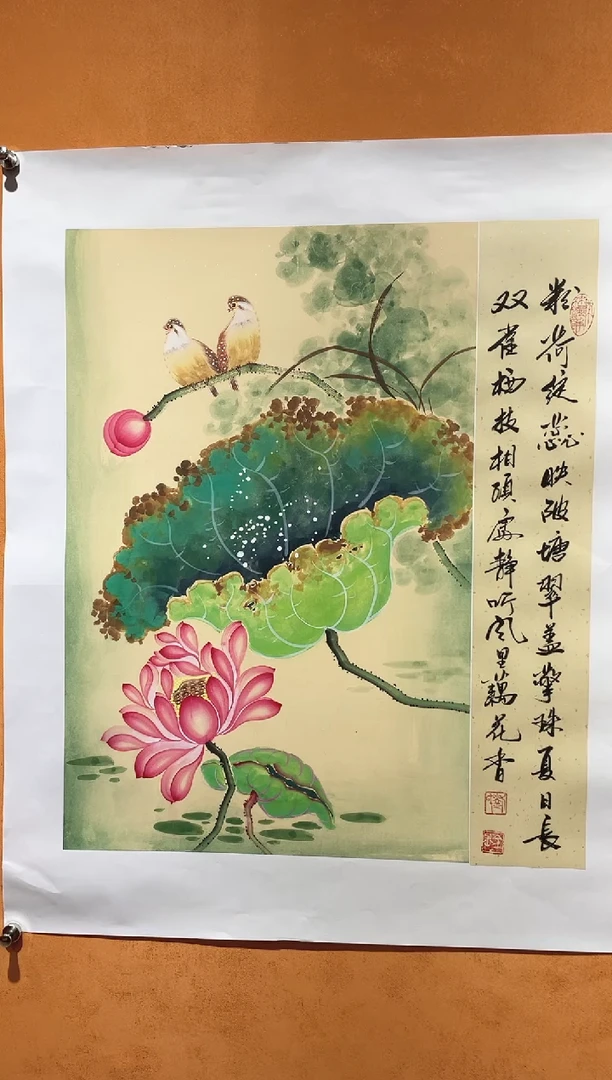 粉荷绽蕊映陂塘翠盖擎珠夏日长
双雀栖枝相顾处静听风里藕花香